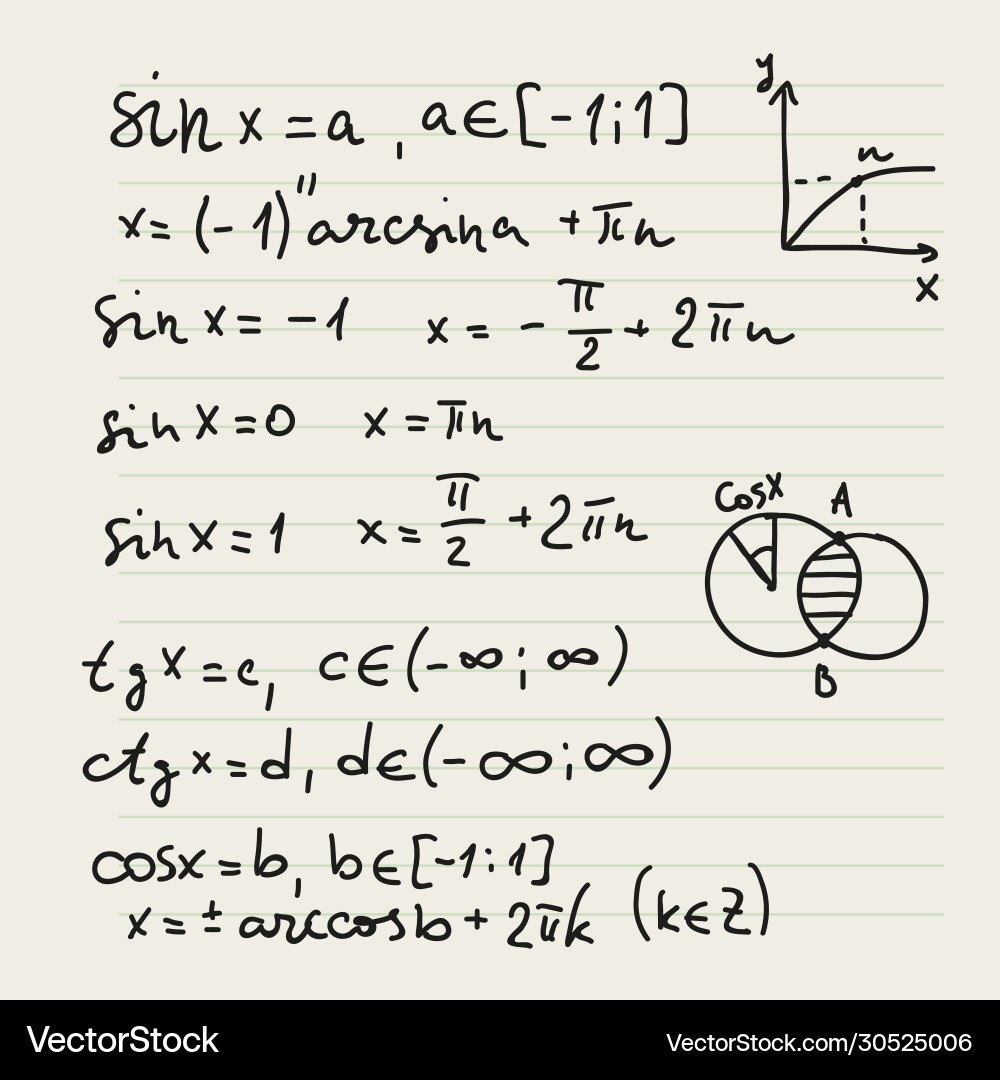 sin x = a , a ∈ [-1; 1]
x = (-1)" arcsin a + πn
sin x = -1 x = - π/2 + 2πn
sin x = 0 x = πn
sin x = 1 x = π/2 + 2πn
tg x = c, c ∈ (-∞; ∞)
ctg x = d, d ∈ (-∞; ∞)
cosx = b, b ∈ [-1; 1]
x = ± arccosb + 2πk (k ∈ Z)
y
n
x
cosx A
B
VectorStock VectorStock.com/30525006